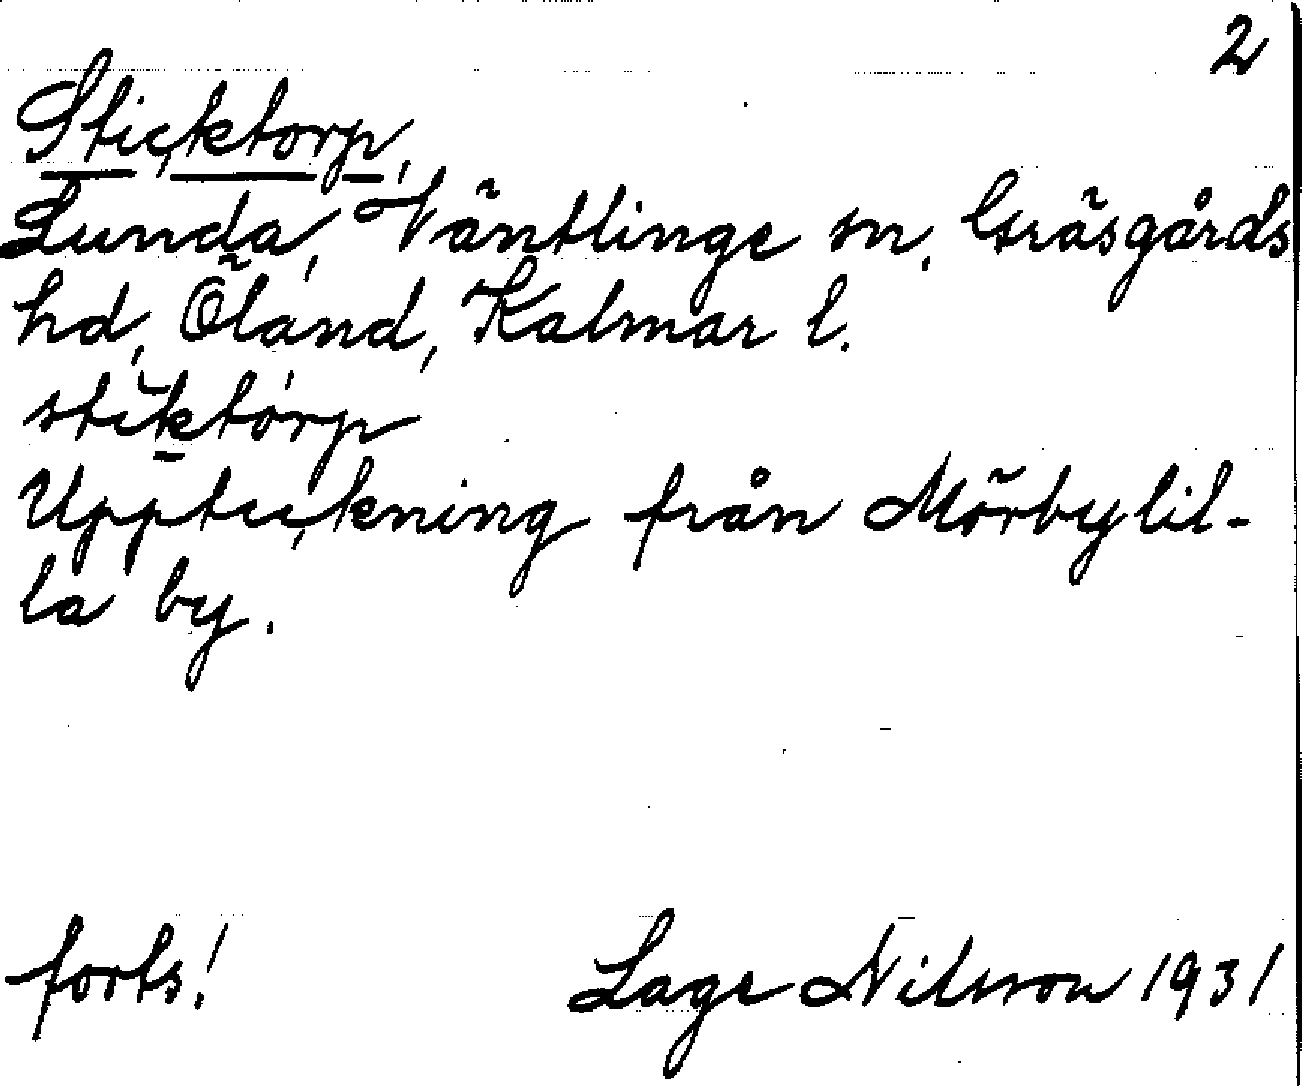 2
Sticktorp,
Lunda, Väntlinge sn, Gräsgårds
hd, Öland, Kalmar l.
stiktorp
Uppteckning från Mörbylil-
la by.
forts! Lage Nilsson 1931